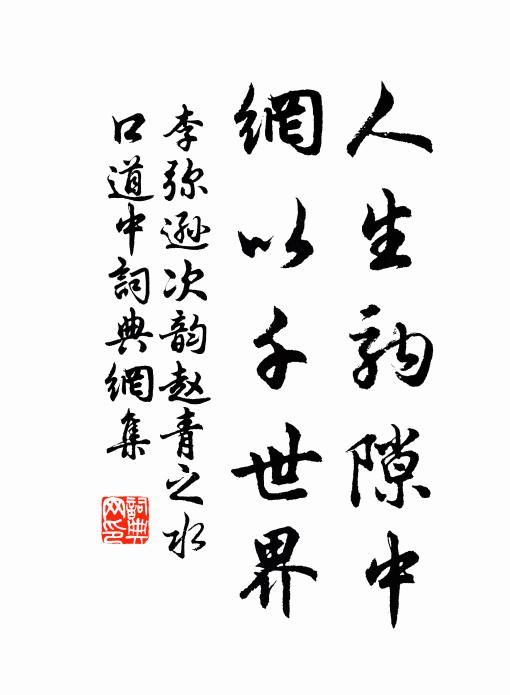 人生駒隙中
網以千世界
李弥遜次韵趙青之水
口道中詞典網集
詞典
网印